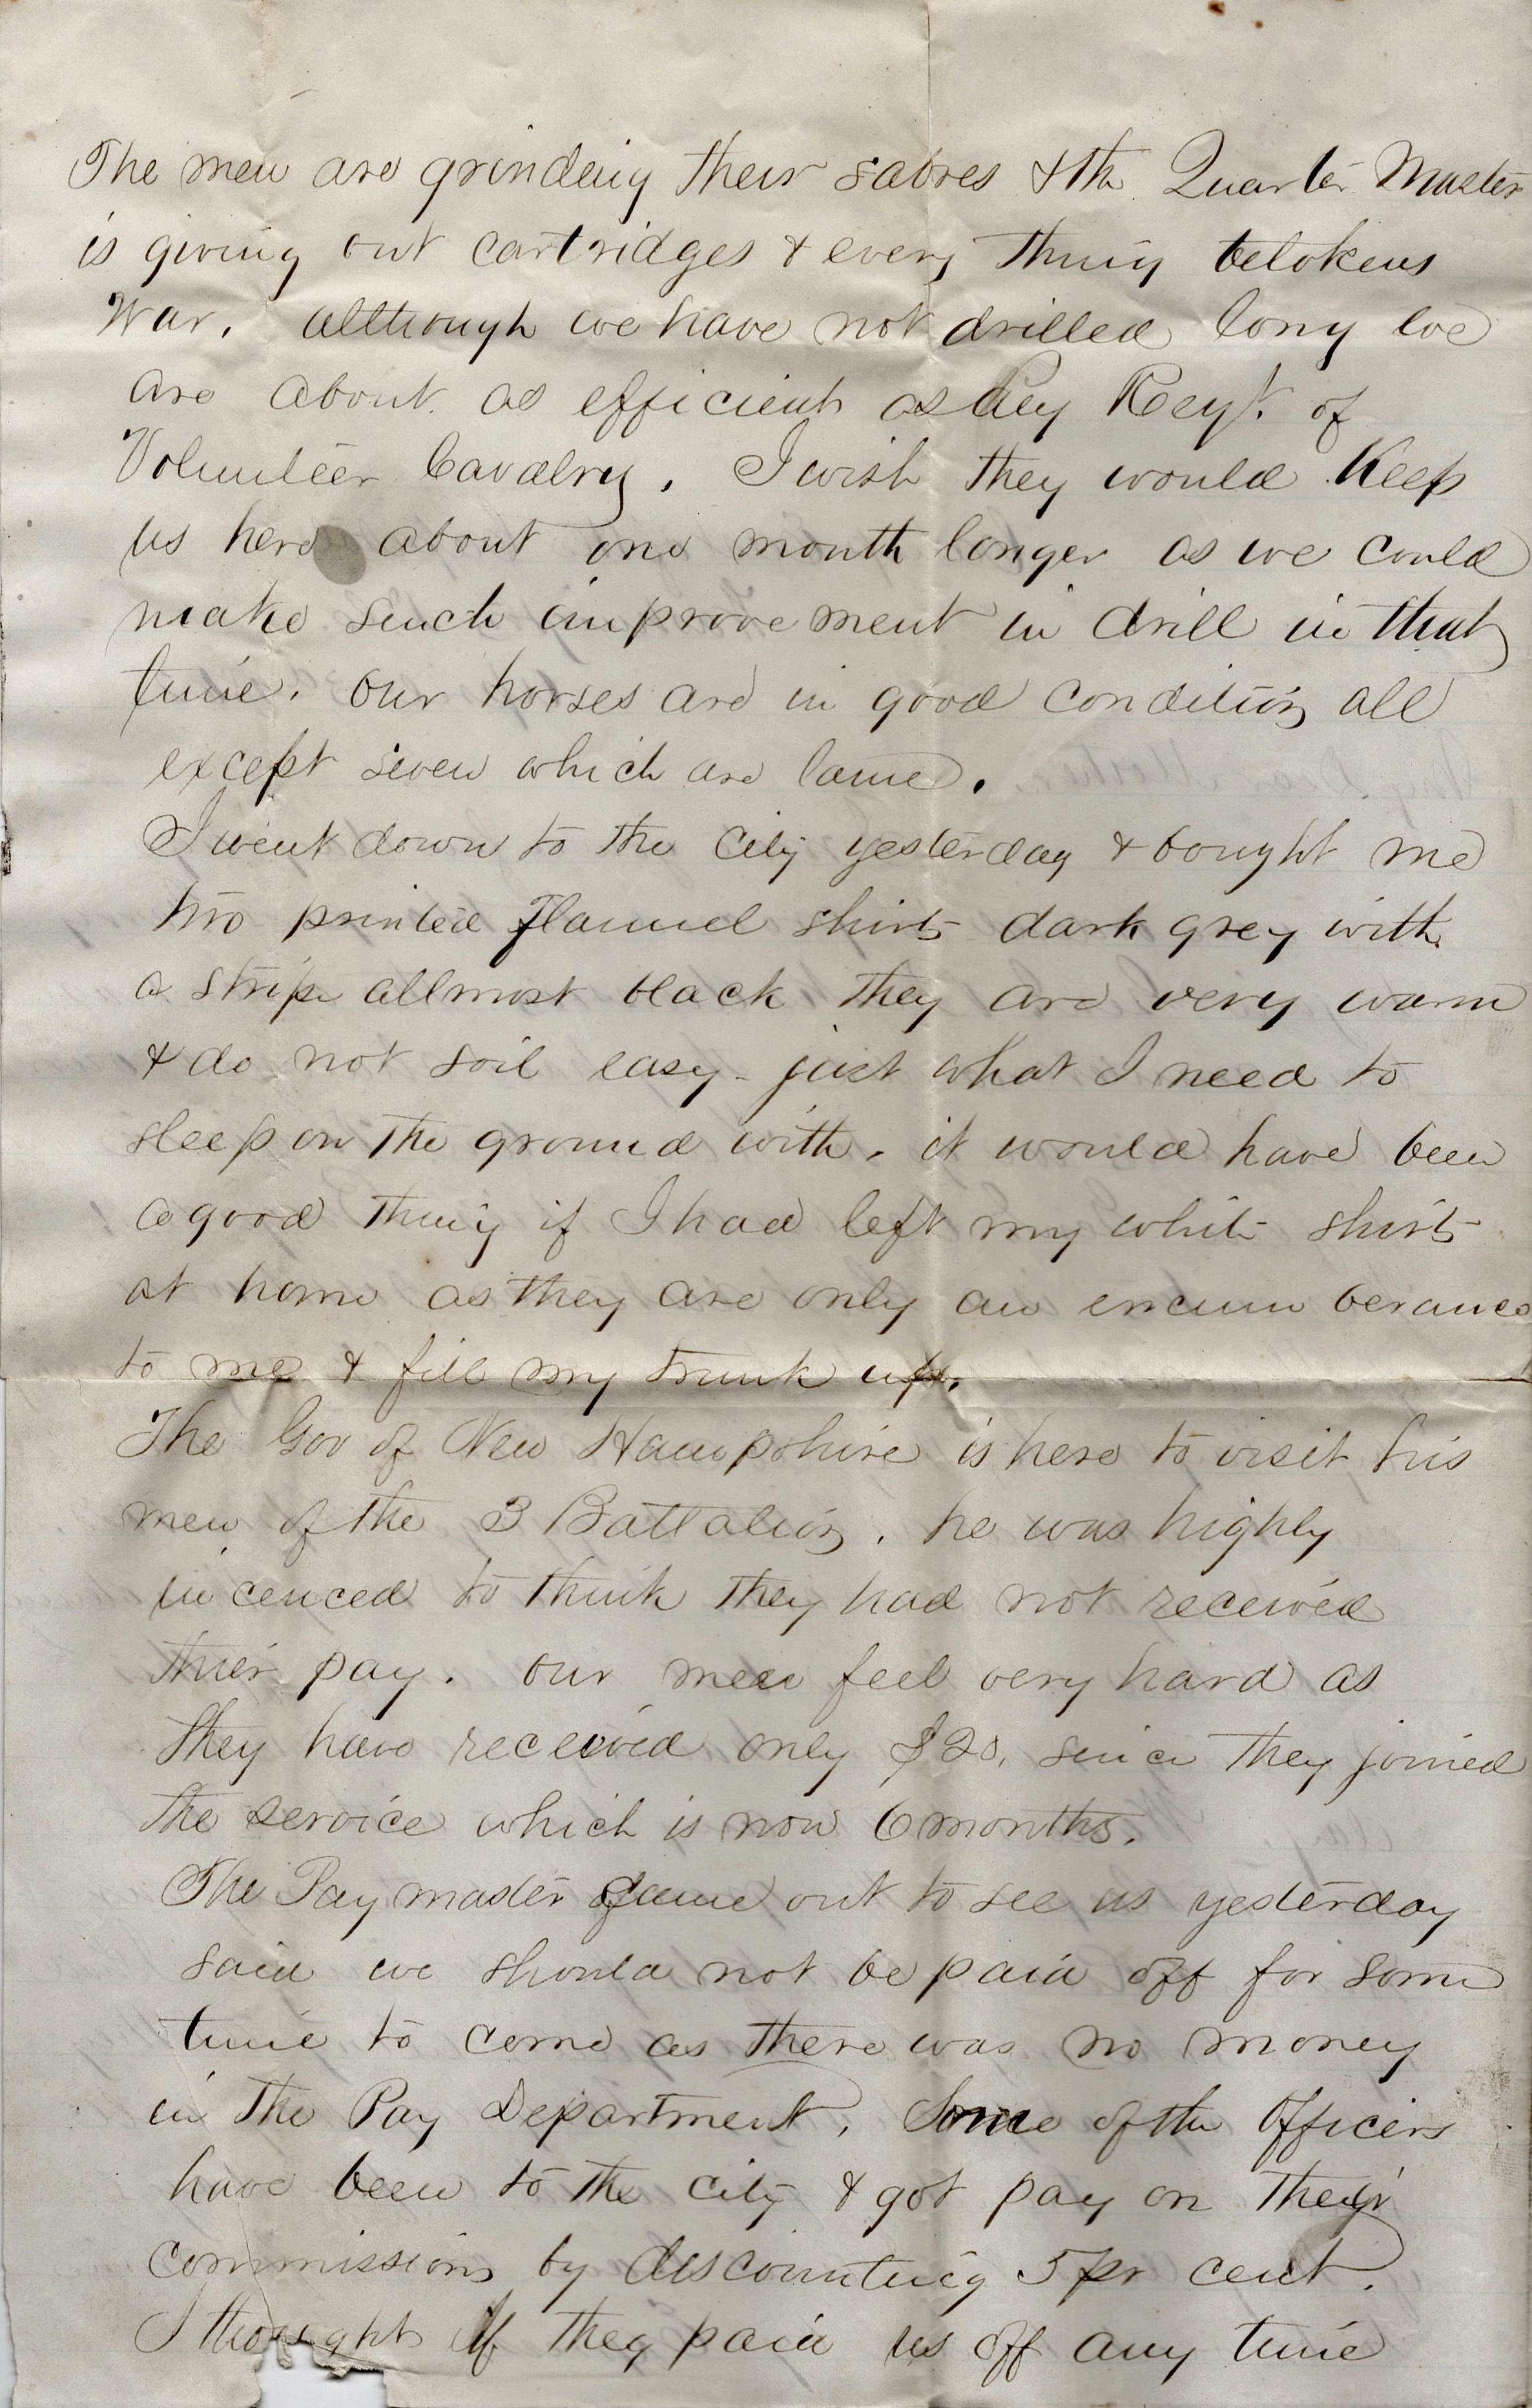 The men are grinding their sabres & the Quarter Master
is giving out cartridges & every thing betokens
War. although we have not drilled long we
are about as efficient as any Regt. of
Volunteer Cavalry. I wish they would Keep
us here about one month longer as we could
make such improvement in drill in that
time. our horses are in good condition all
except seven which are lame.
I went down to the city yesterday & bought me
two printed Flannel shirts dark grey with
a stripe allmost black they are very warm
& do not soil easy - just what I need to
sleep on the ground with. it would have been
a good thing if I had left my white shirts
at home as they are only an encumberance
to me & fill my trunk up.
The Gov of New Hampshire is here to visit his
men of the 3 Battalion. he was highly
incenced to think they had not received
thier pay. our men feel very hard as
they have received only $20. since they joined
the service which is now 6 months.
The Pay master came out to see us yesterday
said we should not be paid off for some
time to come as there was no money
in the Pay Department. Some of the Officers
have been to the city & got pay on their
commissions by discounting 5 pr cent.
I thought if they paid us off any time